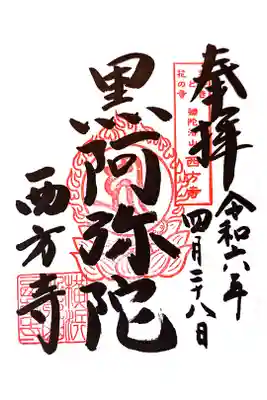 奉拝
令和六年
四月二十八日
花の寺
補陀洛山
西方寺
黒阿弥陀
西方寺
横浜